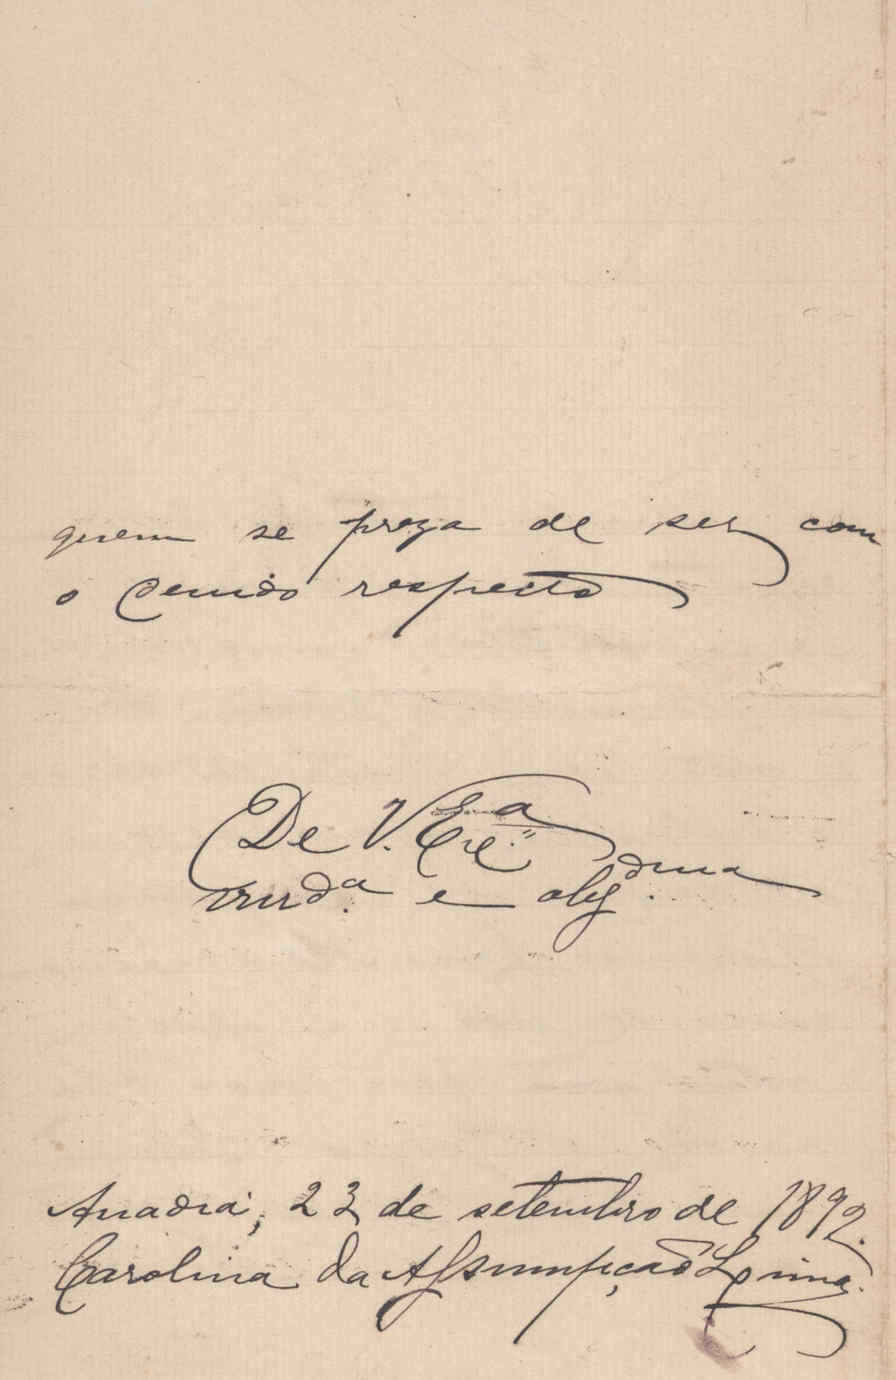 quem se preza de ser, com
o devido respeito
De V. Exc.ª
mud.ª e obg.dma
Anadia, 23 de setembro de 1892.
Carolina da Assumpção Lima.